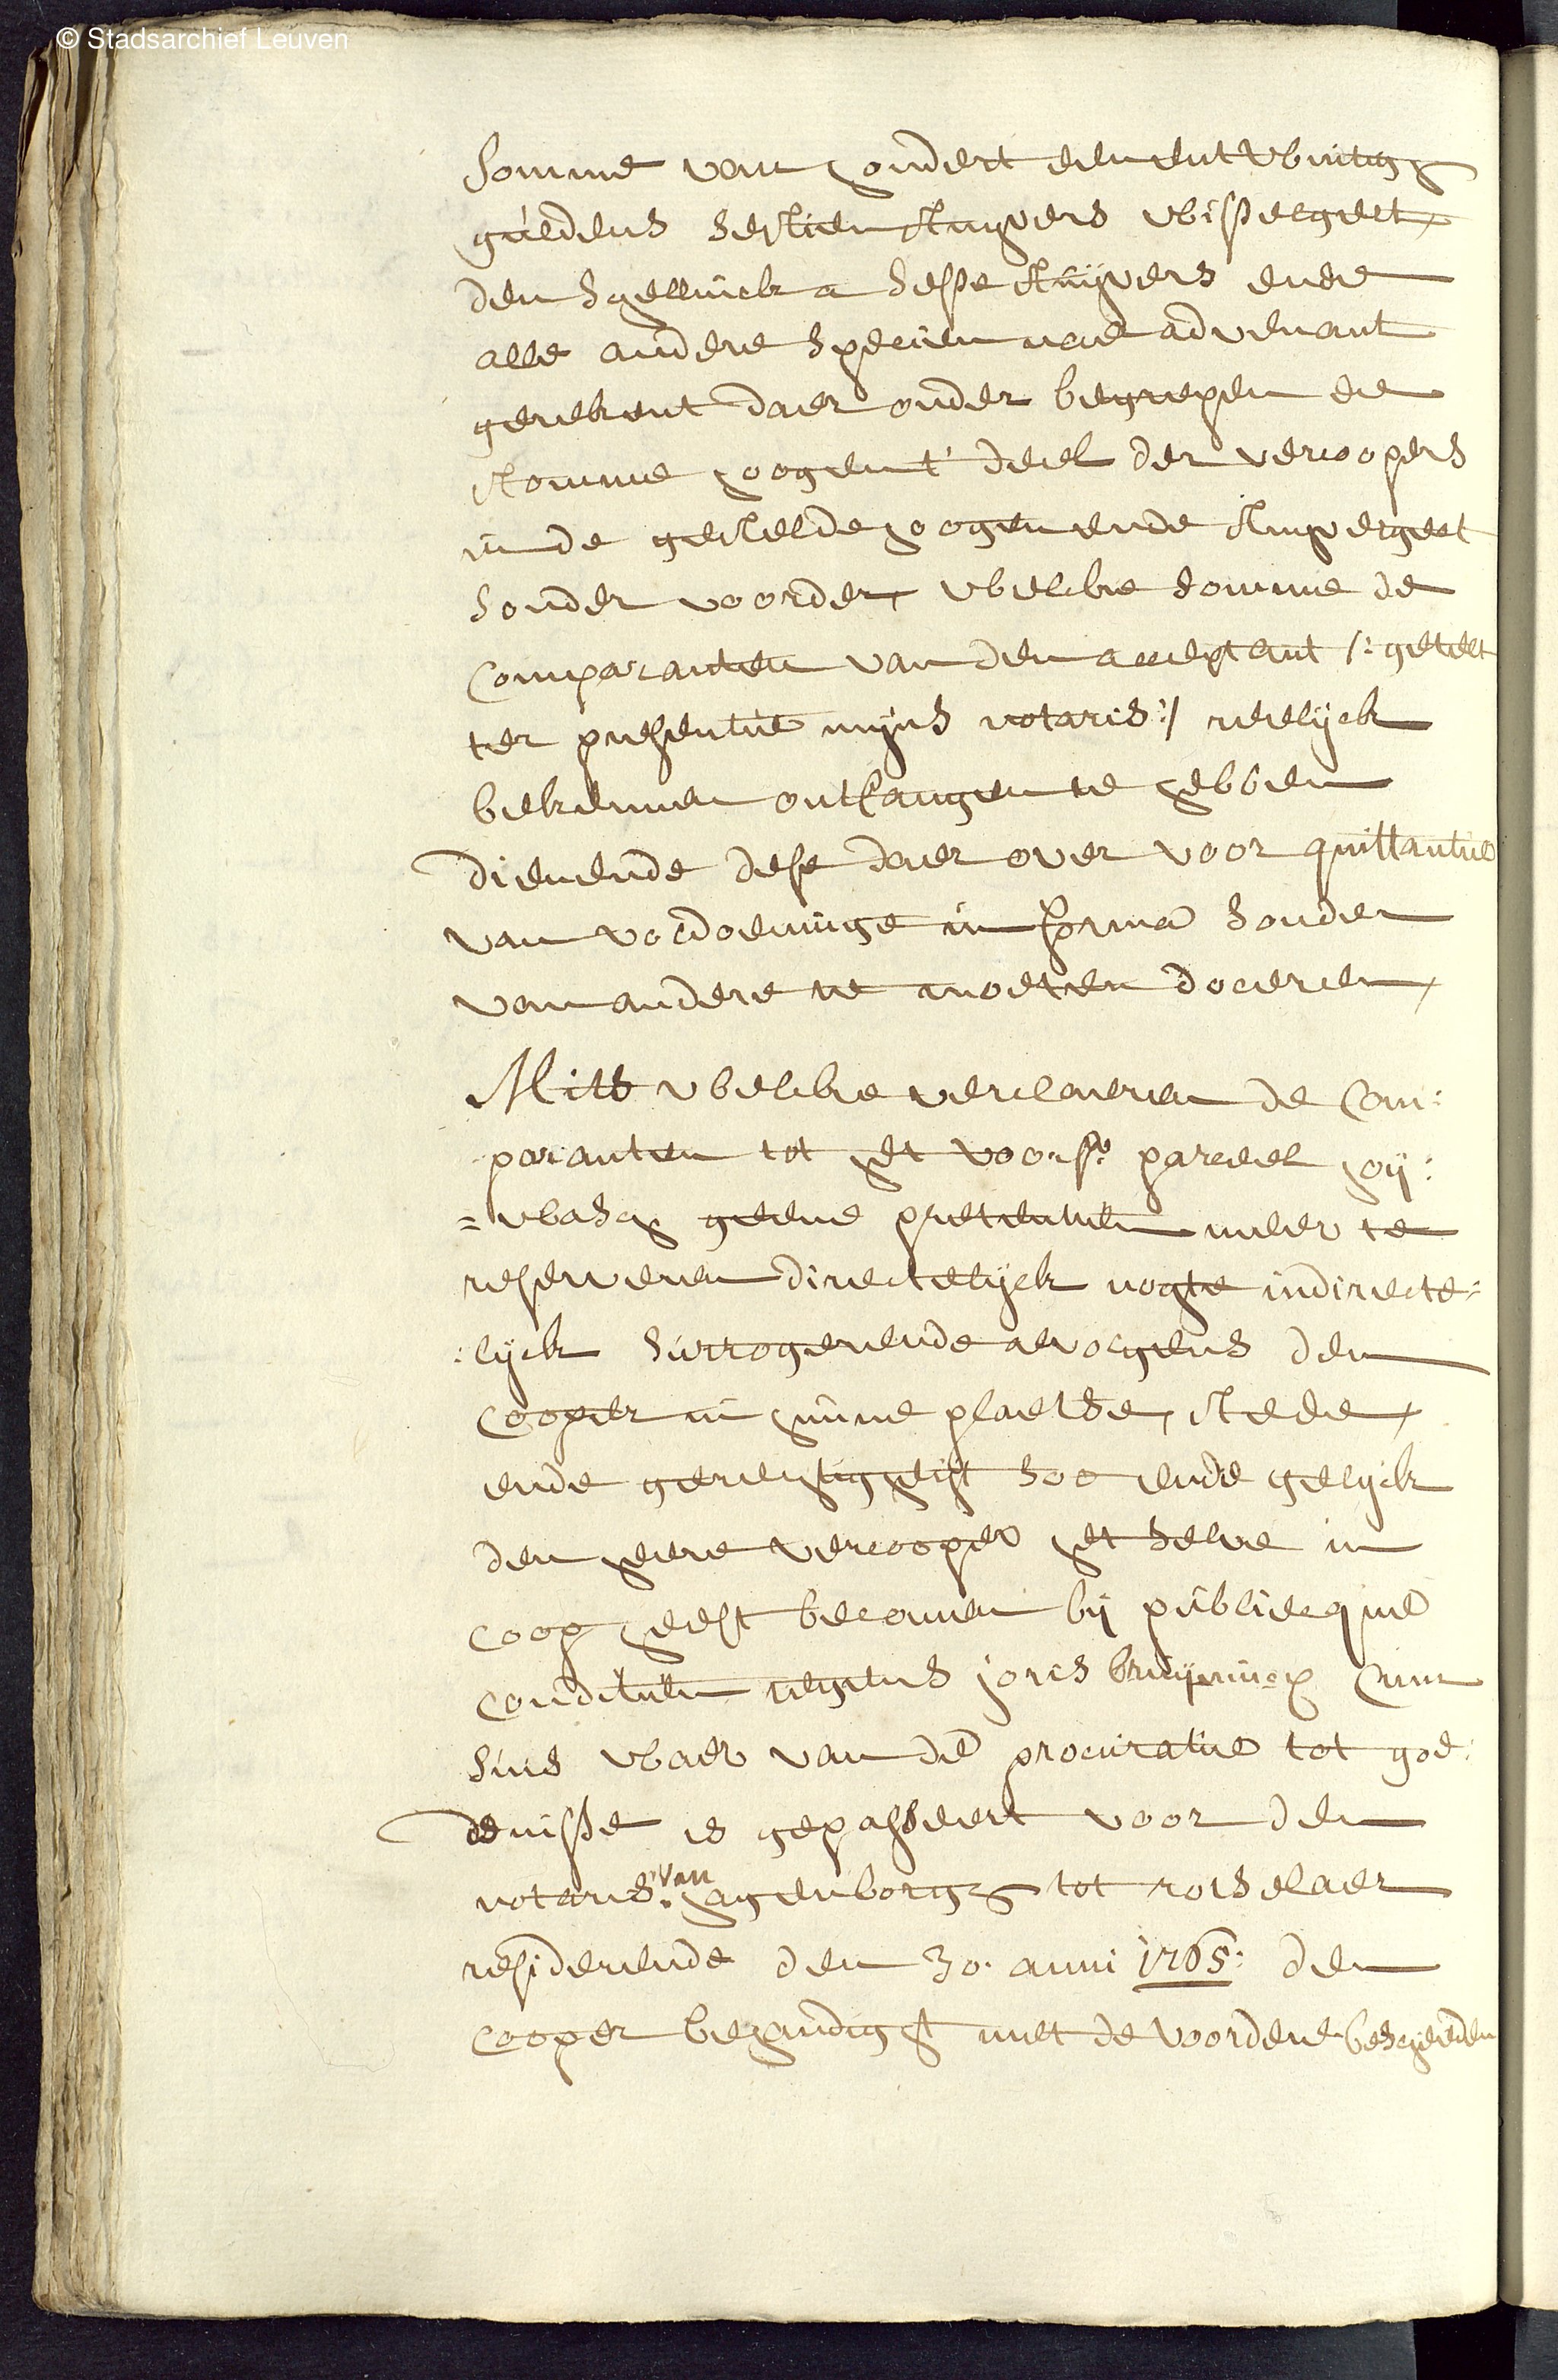 © Stadsarchief Leuven
somme van hondert eenentwintigh
guldens sestien stuyvers wisselgelt,
den schellinck a sesse stuyvers ende
alle andere specien naer advenant
gerekent daer onder begrepen de
somme hoogen t' deel der vercoopers
in de gestelde hoogen ende stuyvergelt
sonder voorder, welcke somme de
comparanten van den acceptant /: getelt
ter presentie mijns notaris :/ reelijck
bekennen ontfangen te hebben
dienende dese daer over voor quittantie
van voldoeninge in forma sonder
van andere te moeten doceren,
Mits welcke verclaeren de com:
paranten tot het voors: parceel hoy:
=wasch geene pretentien meer te
reserveren directelijck nochte indirecte:
:lijck surrogerende alvolgens den
cooper in hunne plaetse, stede,
ende gerechtigheijt soo ende gelijck
den heere vercooper het selve in
coop heeft becomen bij publiecque
conditien tegens joris bruijninx cum
suis waer van de procuratie tot goe:
denisse is gepasseert voor den
notaris van hagenborgh tot rotselaer
residerende den 30. anni 1765: den
cooper behandight met de voordere bescheeden